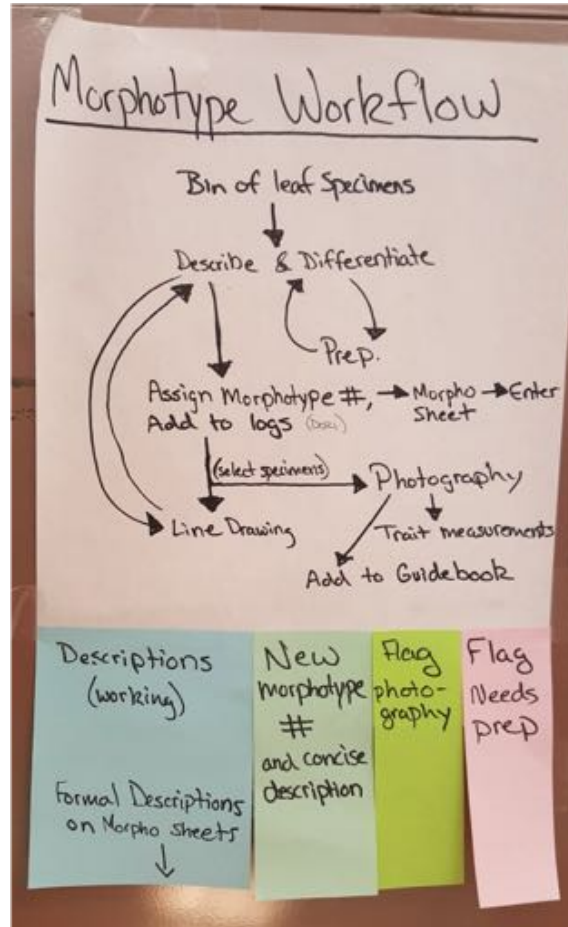 Morphotype Workflow
Bin of leaf Specimens
Describe & Differentiate
Prep.
Assign Morphotype #, → Morpho Sheet → Enter
Add to logs
(select specimens)
Photography
Line Drawing
Trait measurements
Add to Guidebook
Descriptions
(working)
Formal Descriptions
on Morpho Sheets
New
morphotype
#
and concise
description
Flag
photo-
graphy
Flag
Needs
prep